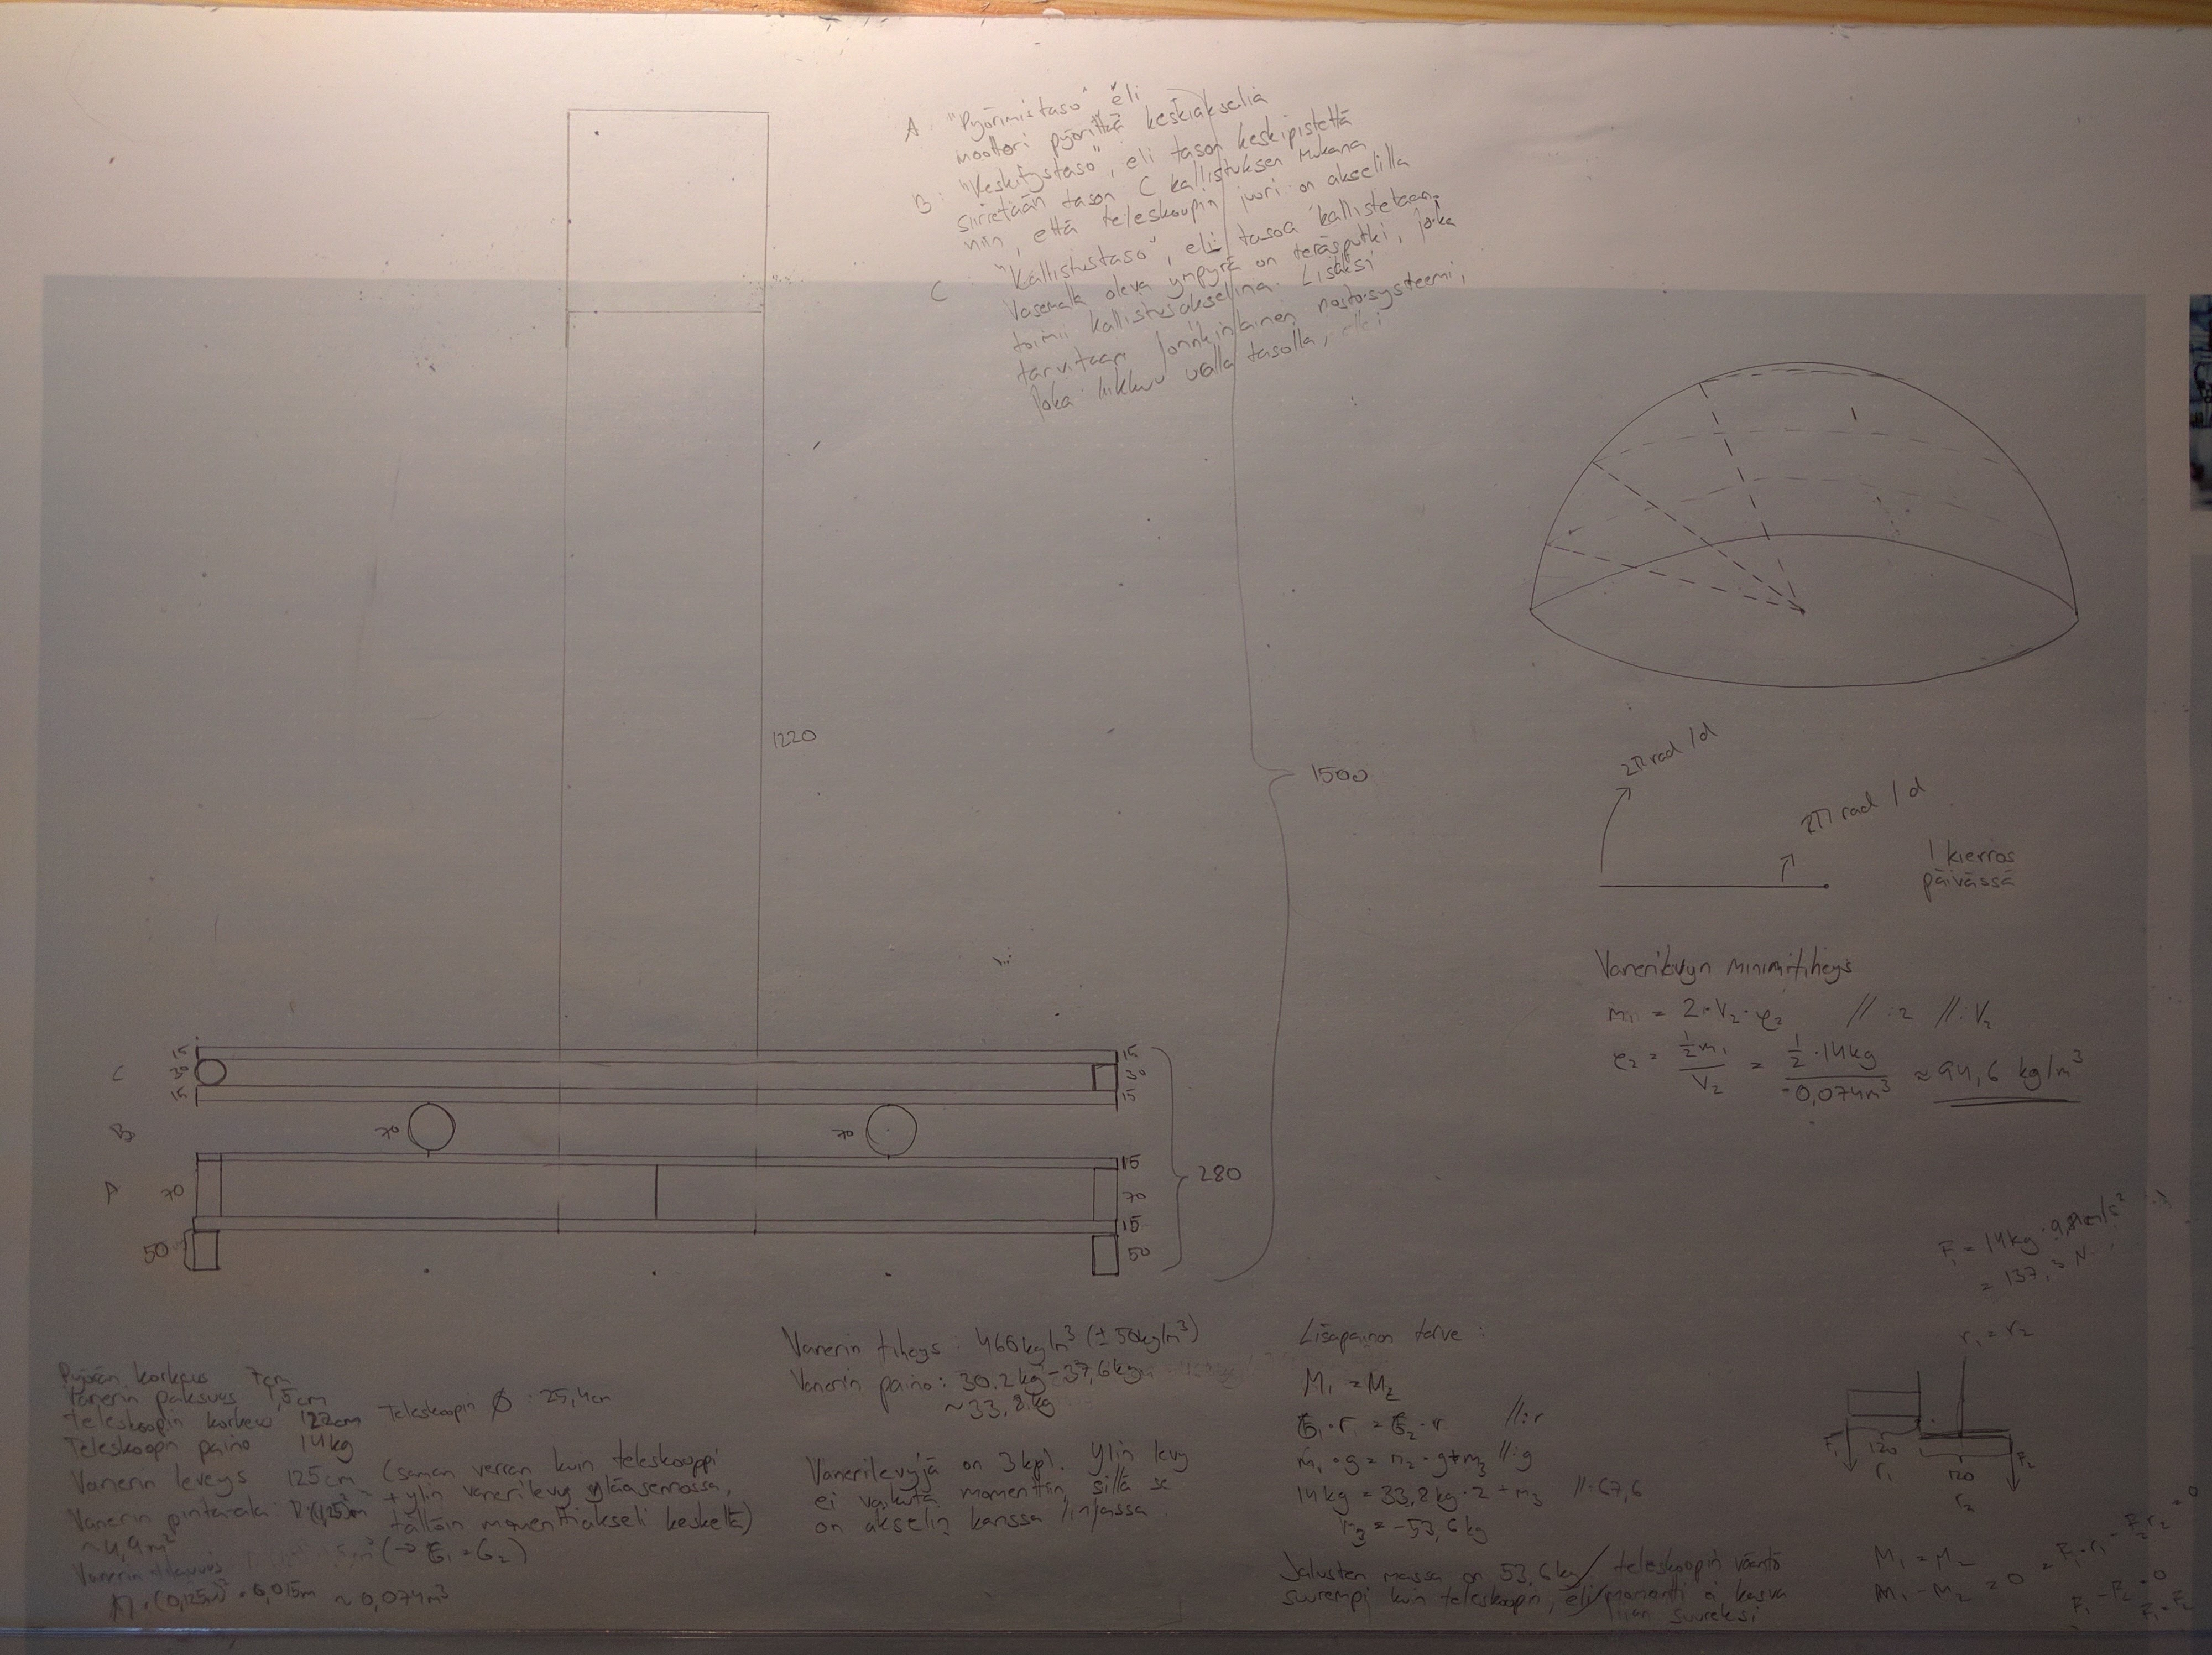 A : "Pyörimistaso" eli
moottori pyörittää keskiakselia
B : "Keskitystaso", eli tason keskipistettä
siirretään tason C kallistuksen mukana
niin, että teleskoopin juuri on akselilla
C "Kallistustaso", eli tasoa kallistetaan.
Vasemalla oleva ympyrä on teräsputki, joka
toimii kallistusakselina. Lisäksi
tarvitaan jonkinlainen nostosysteemi,
joka liikkuu tasolla,
1220
1500
2π rad / d
2π rad / d
1 kierros
päivässä
Vanerilevyn minimitiheys
m₁ = 2·V₂·ρ₂ //:2 //:V₂
ρ₂ = ½m₁ / V₂ = ½·14kg / 0,074m³ ≈ 94,6 kg/m³
C
15
30
15
15
30
15
B
70
70
A
70
50
15
70
15
50
280
F₁ = 14kg · 9,81m/s²
= 137,3 N
r₁ = r₂
F₁
120
r₁
120
r₂
F₂
M₁ = M₂
M₁ - M₂ = 0 = F₁·r₁ - F₂·r₂ = 0
F₁ - F₂ = 0
F₁ = F₂
Pyörän korkeus 7cm
Vanerin paksuus 1,5cm
Teleskoopin korkeus 122cm Teleskoopin Ø : 25,4cm
Teleskoopin paino 14kg
Vanerin leveys 125cm (saman verran kuin teleskooppi
+ ylin vanerilevy yläasennossa,
tällöin momenttiakseli keskeltä)
(→ G₁ = G₂)
Vanerin pinta-ala: π·(1,25)²m
~4,9m²
Vanerin tilavuus
π·(0,125m)²·0,015m ~0,074m³
Vanerin tiheys : 460kg/m³ (±50kg/m³)
Vanerin paino : 30,2kg-37,6kg
~33,8kg
Vanerilevyjä on 3kpl. Ylin levy
ei vaikuta momenttiin, sillä se
on akselin kanssa linjassa
Lisäpainon tarve :
M₁ = M₂
G₁·r = G₂·r //:r
m₁·g = m₂·g+m₃ //:g
14kg = 33,8kg·2 + m₃ //-67,6
m₃ = -53,6kg
Jalusten massa on 53,6kg teleskoopin vääntö
suurempi kuin teleskoopin, eli momentti ei kasva
liian suureksi